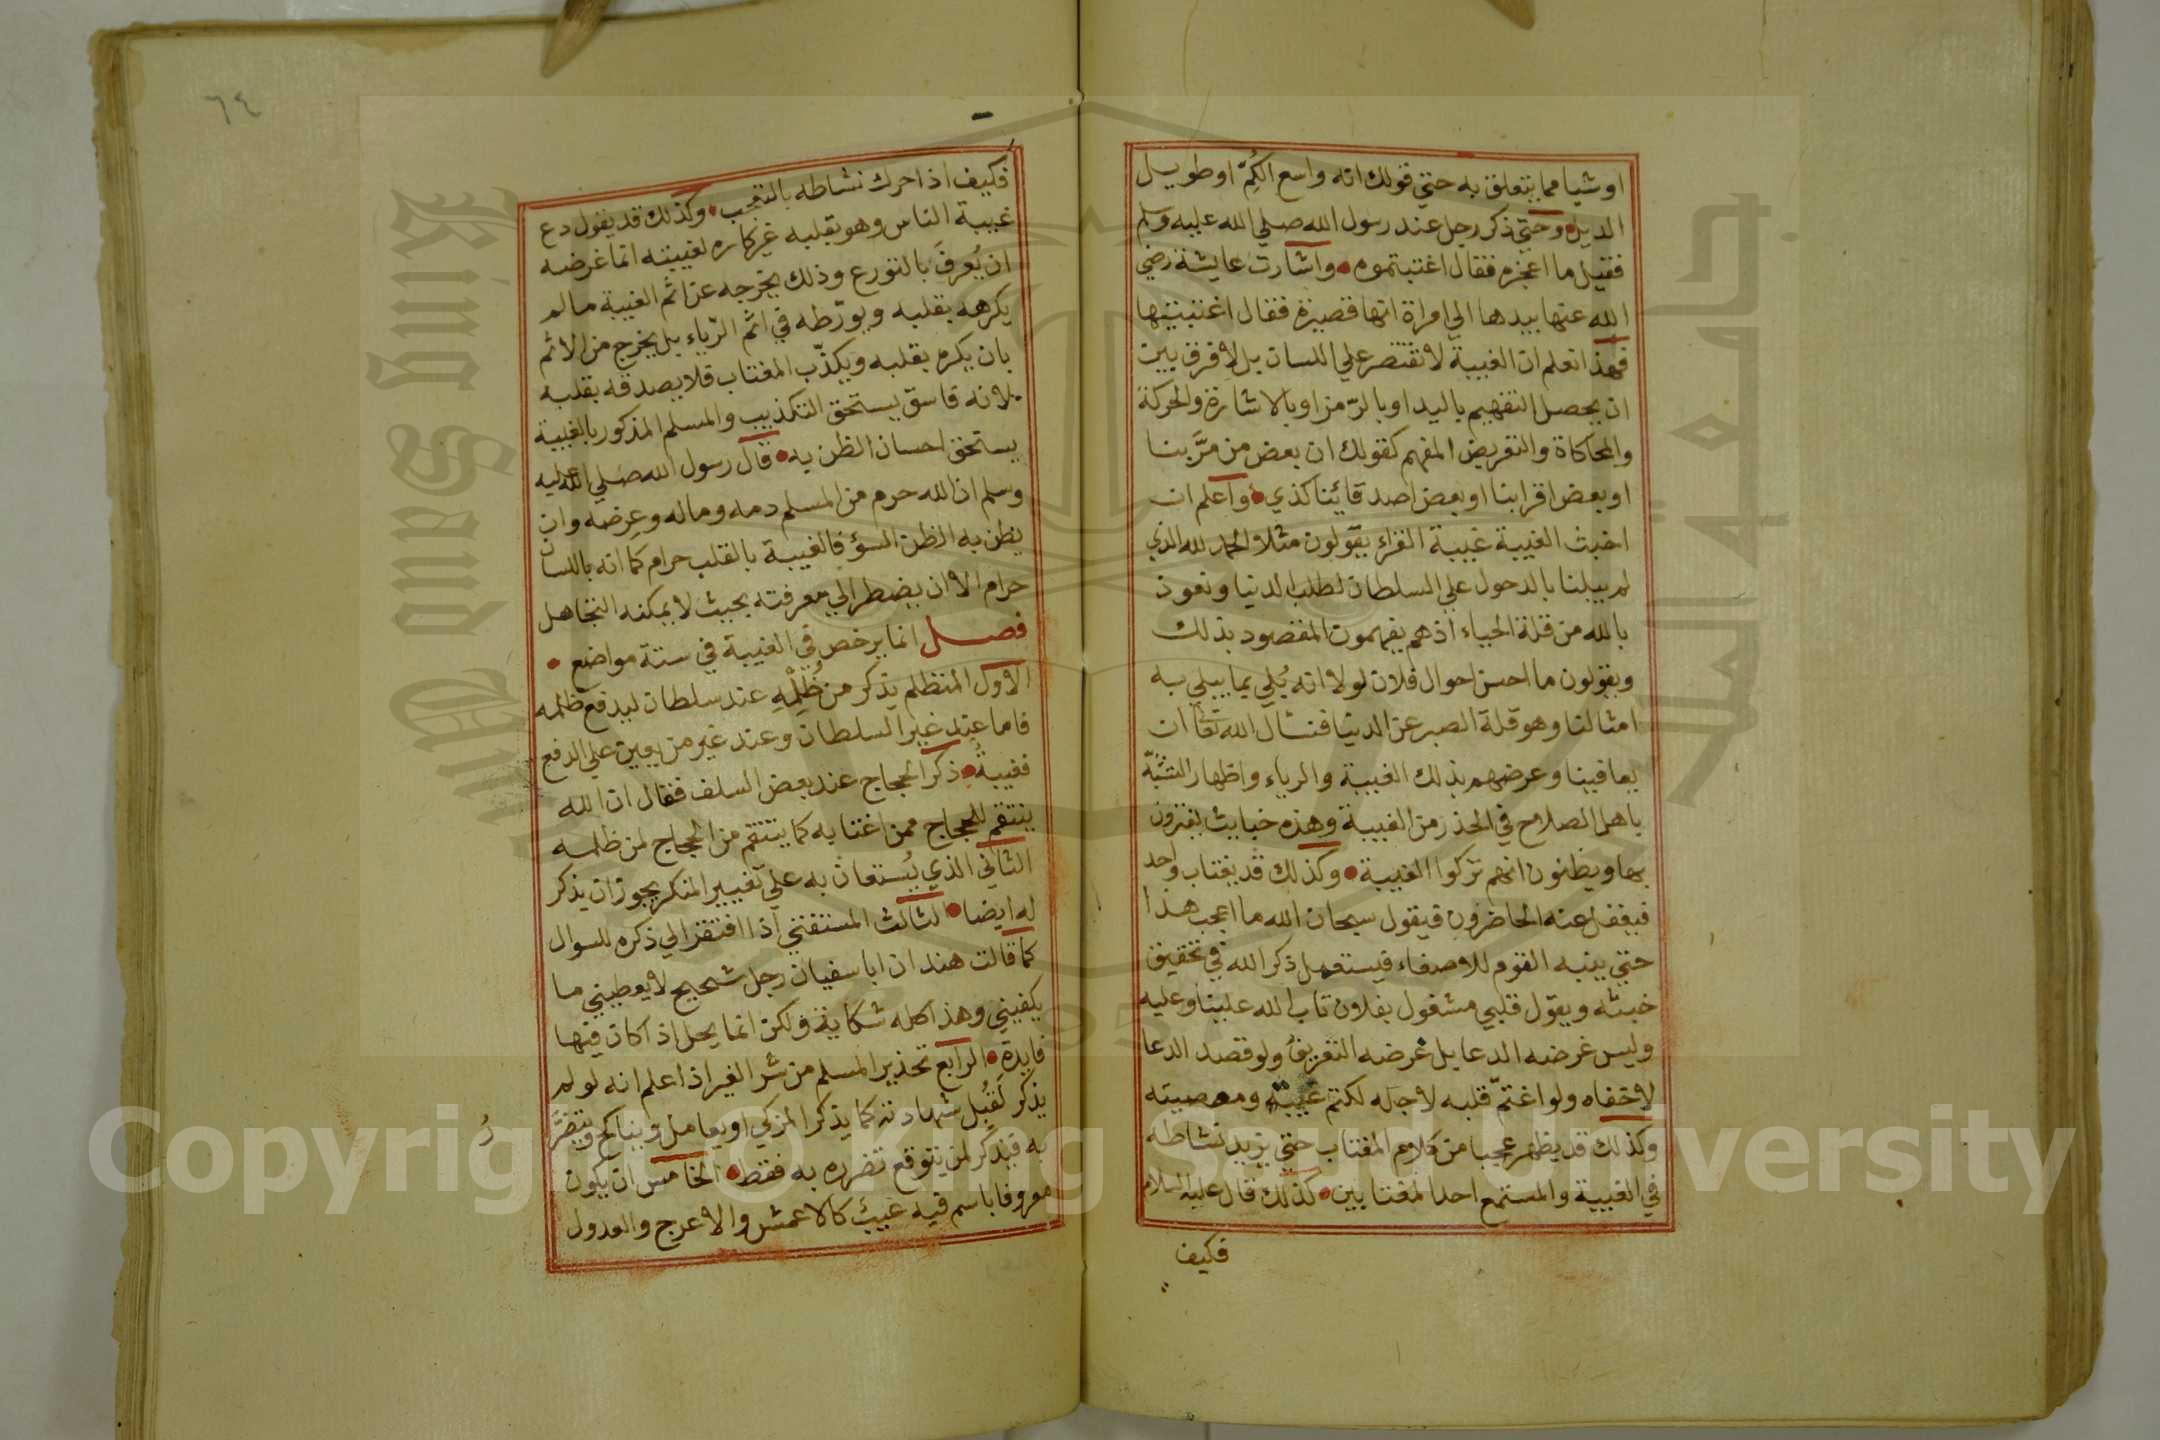 اوشيا مما يتعلق به حتي قولك انه واسع الكُمّ او طويل
الديل وحتي ذكر رجل عند رسول الله صلي الله عليه وسلم
فقيل ما اعجزه فقال اغتبتموه واشارت عايشة رضي
الله عنها بيدها الي امراة انها قصيرة فقال اغتبتيها
فهذا تعلم ان الغيبة لا تقتصر علي اللسان بل لا فرق بين
ان يحصل التفهيم باليد او بالرّمز او بالاشارة والحركة
والمحاكاة والتعريض المفهم كقولك ان بعض من مرَّ بنا
او بعض اقرابنا او بعض اصدقائنا كذي واعلم ان
اخبث الغيبة غيبة القراء يقولون مثلا الحمد لله الذي
لم يبلنا بالدحول علي السلطان لطلب الدنيا ونعوذ
بالله من قلة الحياء اذ هم يفهمون المقصود بذلك
ويقولون ما احسن احوال فلان لولا انه بُلي بما يبلي به
امثالنا وهو قلة الصبر عن الدنيا فنسال الله تعا ان
يعافينا وعرضهم بذلك الغيبة والرياء واظهار التشبّه
باهل الصلاح في الحذر من الغيبة وهذه خبايث يغترون
بها ويظنون انهم تركوا الغيبة وكذلك قد يغتاب واحد
فيغفل عنه الحاضرون فيقول سبحان الله ما اعجب هذا
حتي ينبه القوم للاصغاء فيستعمل ذكر الله في تحقيق
خبثه ويقول قلبي مشغول بفلان تاب الله علينا وعليه
وليس غرضه الدعا بل غرضه التعريف ولو قصد الدعا
لاخفاه ولو اغتمّ قلبه لاجله لكتم غيبته ومعصيته
وكذلك قد يظهر عجبا من كلام المغتاب حتي يزيد نشاطه
في الغيبة والمستمع احد المغتابين كذلك قال عليه السلام
فكيف
٦٤
فكيف اذا حرك نشاطه بالتعجب وكذلك قد يقول دع
غيبة الناس وهو بقلبه غير كاره لغيبته انما غرضه
ان يُعرفَ بالتورع وذلك يخرجه عن اثم الغيبة ما لم
يكرهه بقلبه ويورّطه في اثم الرّياء بل يخرج من الاثم
بان يكره بقلبه ويكذّب المغتاب فلا يصدقه بقلبه
لانه فاسق يستحق التكذيب والمسلم المذكور بالغيبة
يستحق احسان الظن به قال رسول الله صلي الله عليه
وسلم ان الله حرم من المسلم دمه وماله وعرضه وان
يظن به الظن السؤ فالغيبة بالقلب حرام كما انه باللسان
حرام الا ان يضطر الي معرفته بحيث لا يمكنه التجاهل
فصل انما يرخص في الغيبة في ستة مواضع
الاول المتظلم يذكر من ظُلْمِهِ عند سلطان ليدفع ظلمه
فاما عند غير السلطان وعند غير من يعين علي الدفع
فغيبةٌ ذكر الحجاج عند بعض السلف فقال ان الله
ينتقم للحجاج ممن اغتابه كما ينتقم من الحجاج لمن ظلمه
الثاني الذي يُستعان به علي تغيير المنكر يجوز ان يذكر
له ايضا الثالث المستفتي اذا افتقر الي ذكره للسوال
كما قالت هند ان ابا سفيان رجل شحيح لا يعطيني ما
يكفيني وهذا كله شكاية ولكن انما يحل اذا كان فيها
فايدة الرابع تحذير المسلم من شر الغير اذا علم انه لو لم
يذكر لَقُبِل شهادته كما يذكر المزكي او يعامل ويناكح ويتضرَّ
رُ
به فيذكر لمن يتوقع تضرره به فقط الخامس ان يكون
معروفا باسم فيه عيب كالاعمش والاعرج والعدول
Copyright © King Saud University